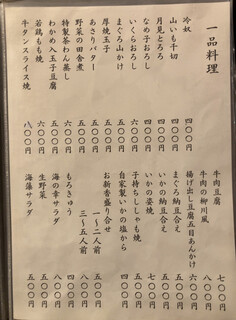 一品料理
冷奴 四〇〇円
山いも千切 四〇〇円
月見とろろ 四〇〇円
なめ子おろし 四〇〇円
いくらおろし 六〇〇円
まぐろ山かけ 六〇〇円
厚焼玉子 五〇〇円
あさりバター 五〇〇円
野菜の田舎煮 五〇〇円
特製茶わん蒸し 五〇〇円
わかめ入玉子豆腐
若鶏もも焼 六〇〇円
牛タンスライス焼 八〇〇円
牛肉豆腐 七〇〇円
牛肉の柳川風 八〇〇円
揚げ出し豆腐五目あんかけ
まぐろ納豆合え
いかの納豆合え 五〇〇円
いかの姿焼 七〇〇円
子持ちししゃも焼 五〇〇円
自家製いかの塩から 四〇〇円
お新香盛り合せ
一〜二人前 五〇〇円
三〜五人前 八〇〇円
もろきゅう 四〇〇円
海の幸サラダ 八〇〇円
生野菜 五〇〇円
海藻サラダ 五〇〇円